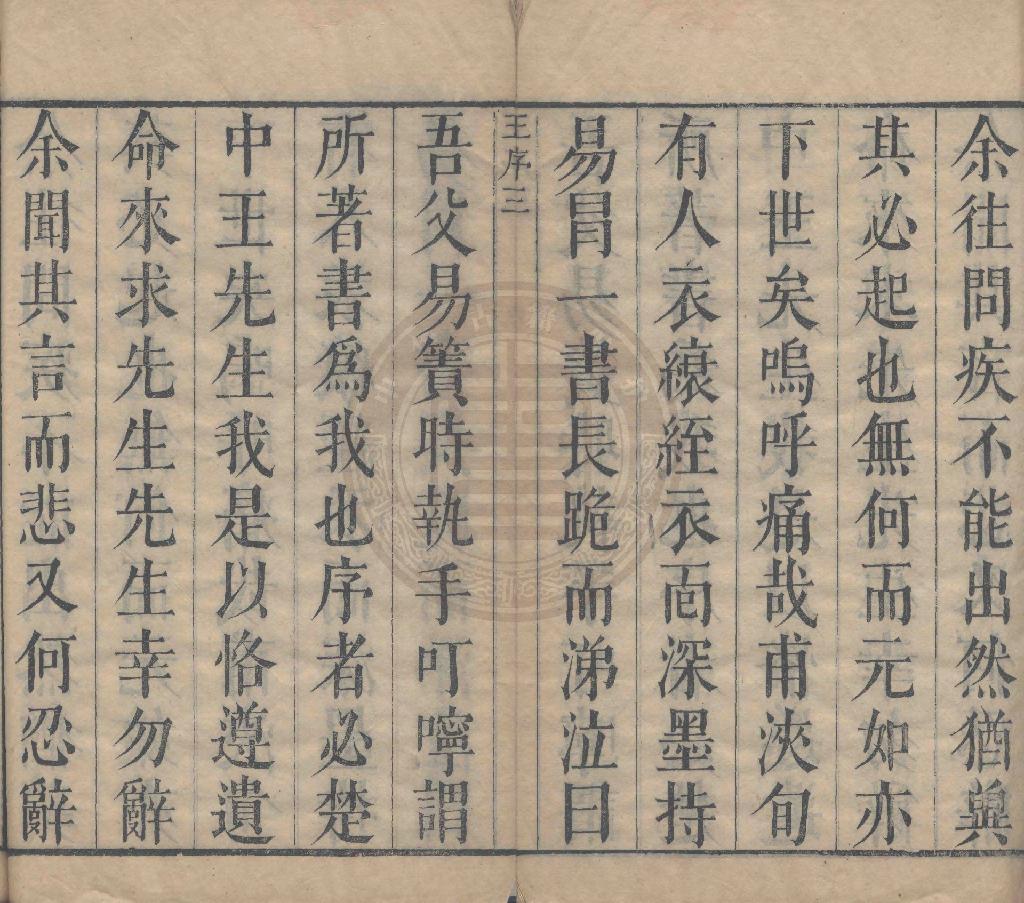 余往問疾不能出然猶兾
其必起也無何而元如亦
下世矣嗚呼痛哉甫浹旬
有人衣縗絰衣靣深墨持
易冐一書長跪而涕泣曰
王序三
吾父易簀時執手叮嚀謂
所著書爲我也序者必楚
中王先生我是以恪遵遺
命來求先生先生幸勿辭
余聞其言而悲又何忍辭